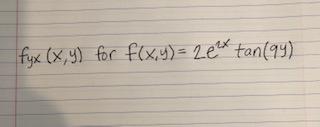 fyx (x,y) for f(x,y) = 2e^{2x} tan(9y)